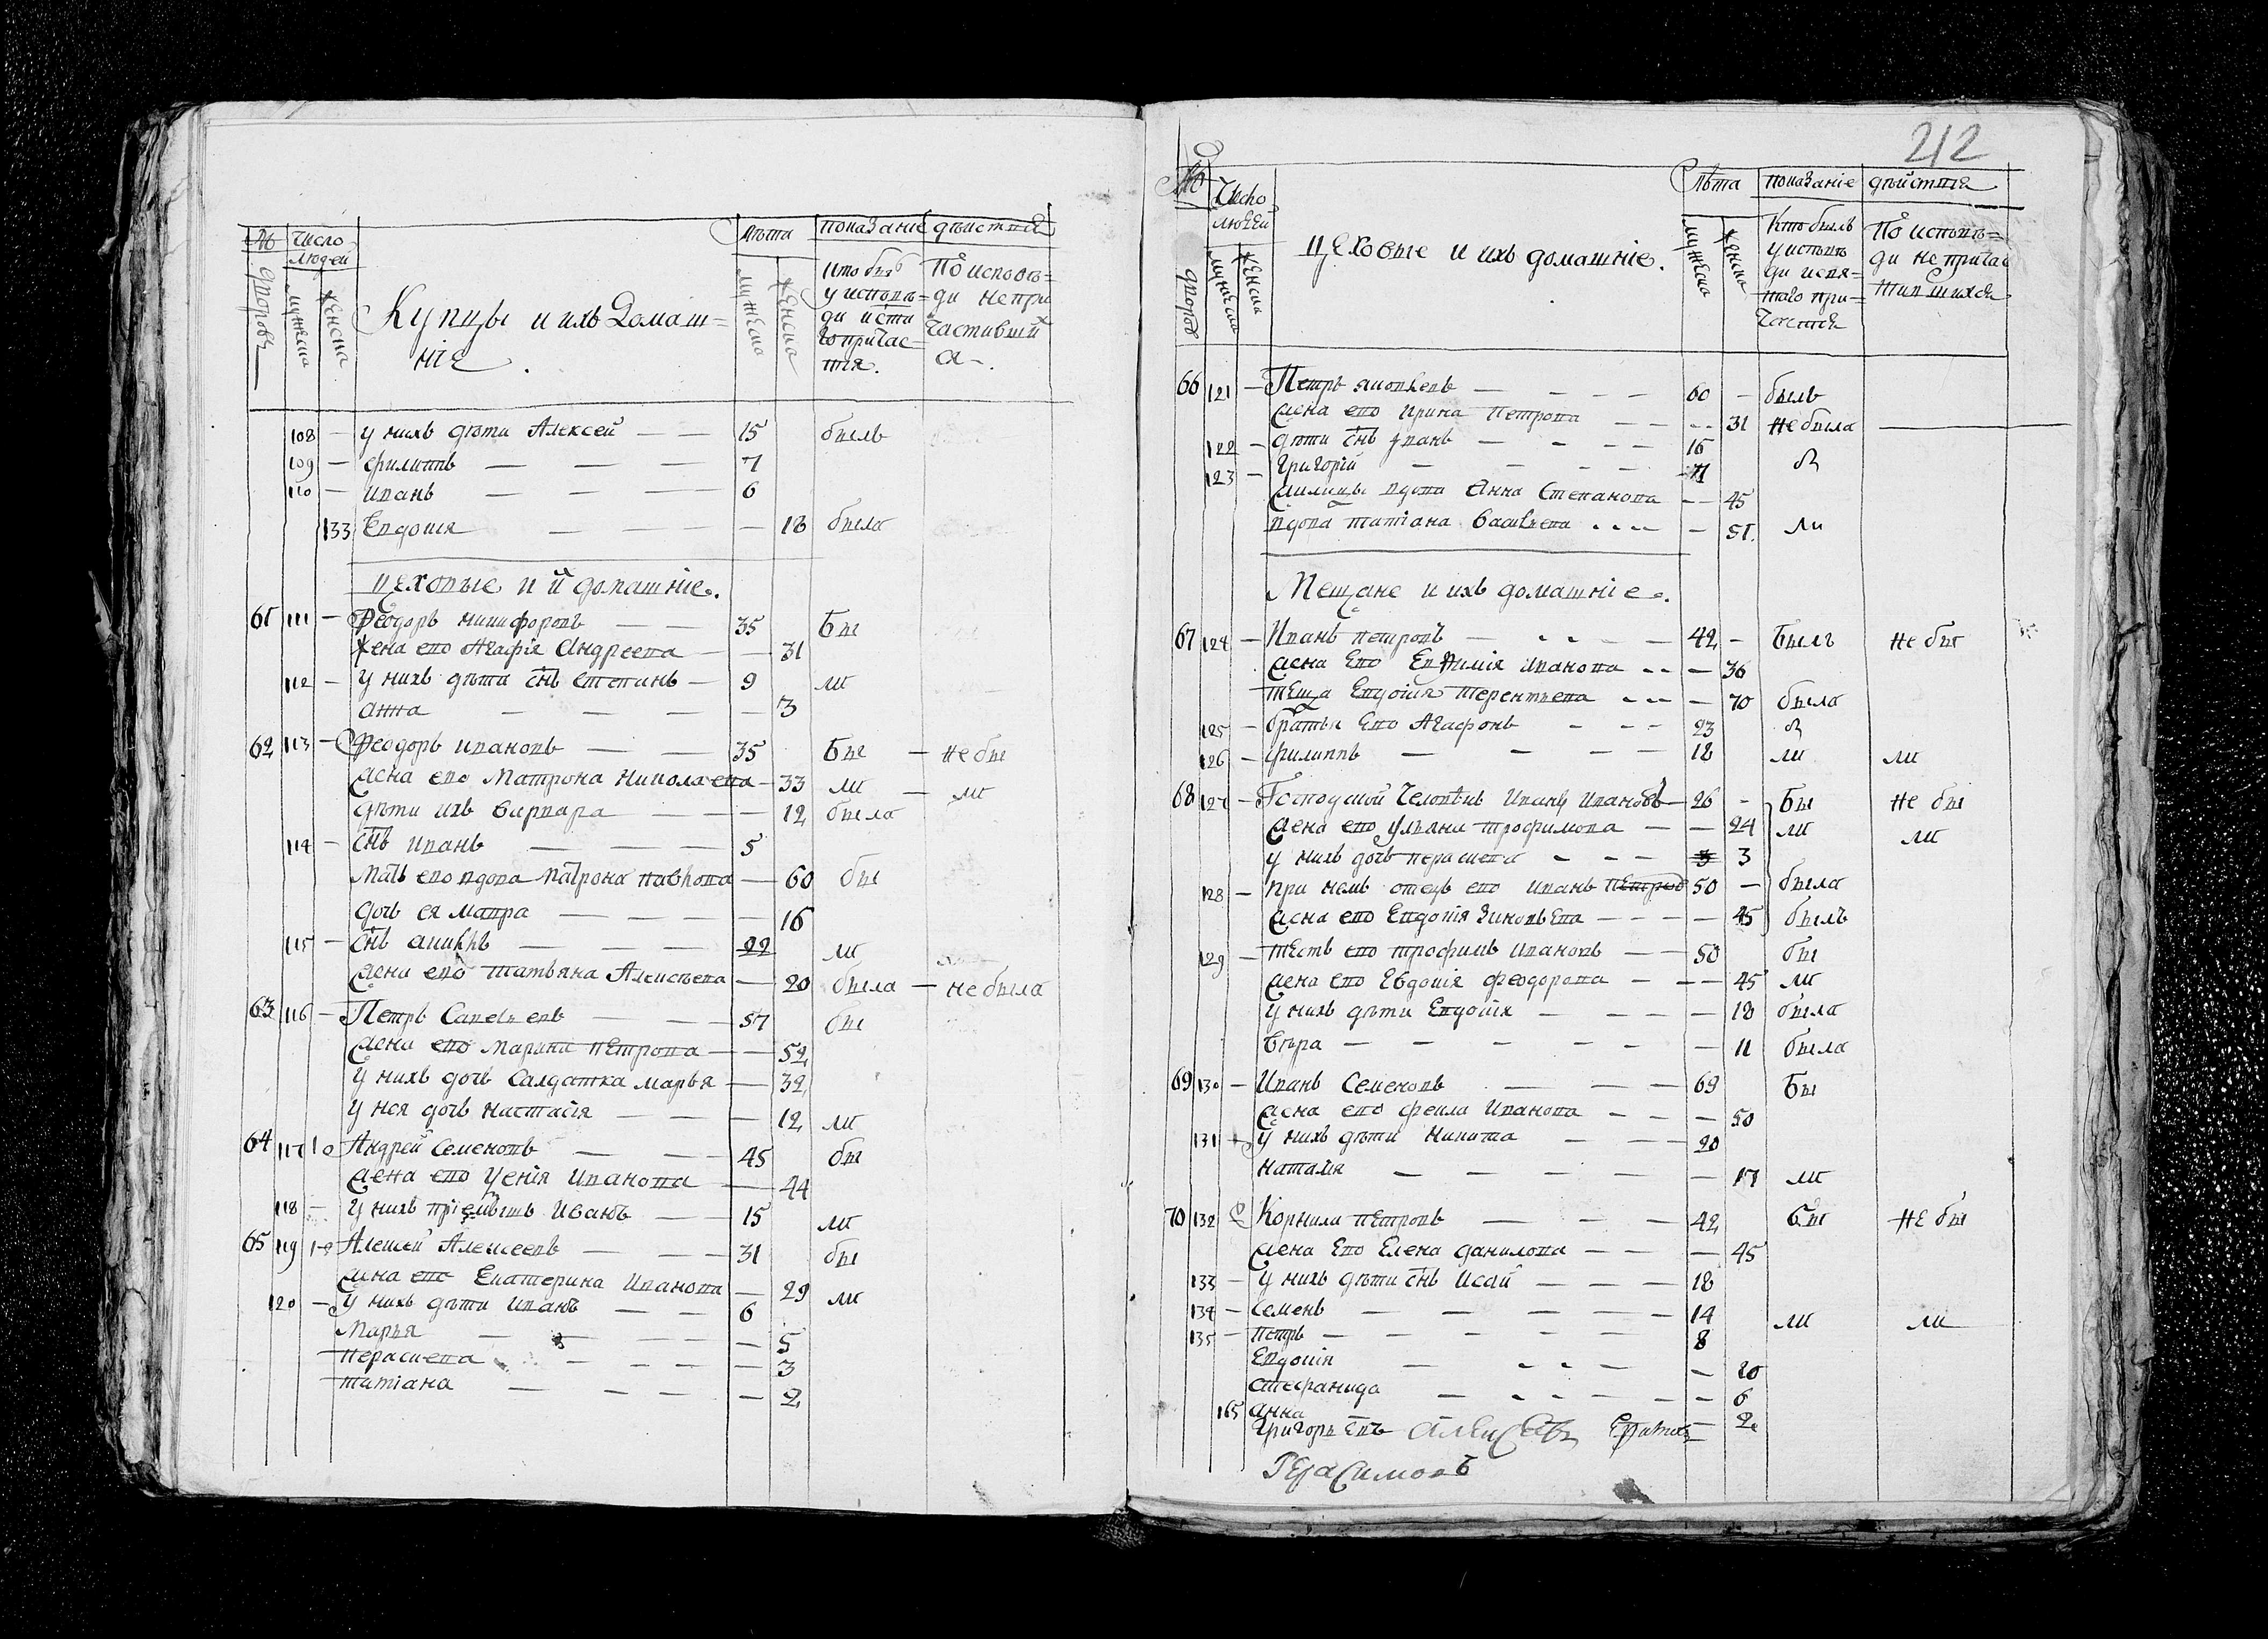 № дворовъ
Число людей
мужеска
женска
Купцы и ихъ Домаш=
ніе.
лѣта
мужеска
женска
показаніе дѣйствія
кто былъ
у исповѣ=
ди и ста
го причас=
тія.
По исповѣ=
ди не при
частивших
ся.
108 — у нихъ дѣти Алексей — — 15 былъ
109 — Филиппъ — — — 7
110 — Иванъ — — — 6
133 Евдокія — — — 18 была
Цеховые и их домашніе.
61 111 — Феодоръ Никифоровъ — — 35 Бы
жена его Агафія Андреева — — 31
112 — у нихъ дѣти снъ Степанъ — 9 ли
Анна — — — — 3
62 113 — Феодоръ Ивановъ — — 35 Бы — не бы
жена его Матрона Николаева — 33 ли — ли
дѣти ихъ Варвара — — — 12 была
114 — снъ Иванъ — — — 5
мать его вдова Матрона Павлова — 60 бы
дочь ея Мавра — — — — 16
115 — снъ — — — 22 ли
жена его Татьяна Алексѣева — 20 была — не была
63 116 — Петръ Савельевъ — — 57 бы
жена его Марина Петрова — — 52
у нихъ дочь Салдатка Марья — 32
у нея дочь Настасія — — — 12 ли
64 117 Андрей Семеновъ — — 45 бы
жена его Ѵенія Иванова — 44
118 — у нихъ пріемышъ Иванъ — — 15 ли
65 119 Алексей Алексеевъ — — — 31 бы
жена его Екатерина Иванова — 29 ли
120 — у нихъ дѣти Иванъ — — 6
Марья — — — — 5
Параскева — — — — 3
Татіана — — — — 2
212
№ дворовъ
Число
людей
мужеска
женска
Цеховые и ихъ домашніе.
лѣта
мужеска
женска
показаніе дѣйствія
Кто былъ
у исповѣ
ди и свя=
таго при=
частія
По исповѣ=
ди не прича
стившихся
66 121 — Петръ Яковлевъ — — — — 60 — былъ
жена его Ирина Петрова — — — 31 не была
122 — дѣти снъ Иванъ — — — — 16
123 — Григорій — — — — 11 б
вдова Анна Степанова — — 45
вдова Татіана Васильева — 51. ли
Мещане и ихъ домашніе.
67 124 — Иванъ Петровъ — — — — 42 — Былъ не бы
жена его Евфимія Иванова — — — 36
теща Евдокія Терентьева — — — 70 была
125 — братья его Агафонъ — — — 23 б
126 — Филиппъ — — — — 18 ли ли
68 127 — Господской Человѣкъ Иванъ Ивановъ — 26 — Бы не бы
жена его Ульяна Трофимова — — 24 ли ли
у нихъ дочь Параскева — — — 3
128 — при немъ отецъ его Иванъ Петровъ 50 — была
жена его Евдокія Зиновьева — — — — 45 былъ
129 — тесть его Трофимъ Ивановъ — — 50 бы
жена его Евдокія Феодорова — — — 45 ли
у нихъ дѣти Евдокія — — — — 18 была
Вѣра — — — — — — 11 была
69 130 — Иванъ Семеновъ — — — 69 Бы
жена его Фекла Иванова — — — 50
131 — у нихъ дѣти Никита — — — 20
Наталія — — — — — 17 ли
70 132 Корнила Петровъ — — — 42 бы не бы
жена его Елена Данилова — — — 45
133 — у нихъ дѣти снъ Исай — — — 18
134 — Семенъ — — — — — 14 ли ли
135 — Петръ — — — — — 8
Евдокія — — — — — 20
Стефанида — — — — — — 6
165 Анна — — — — 2
Григорьевъ Алексѣевъ
Герасимовъ